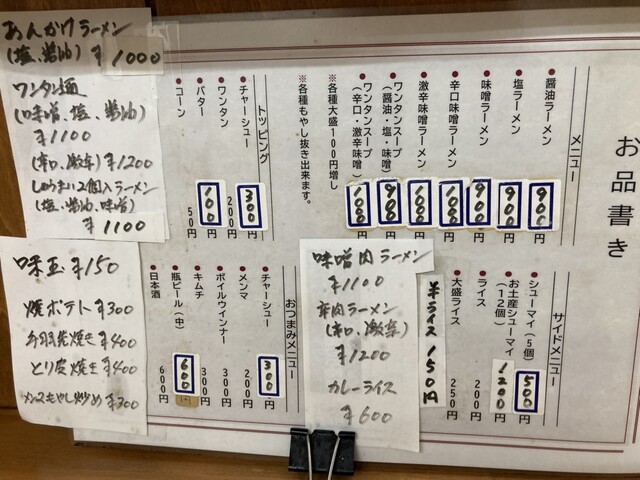 お品書き
メニュー
醤油ラーメン 900円
塩ラーメン 900円
味噌ラーメン 900円
辛口味噌ラーメン 1000円
激辛味噌ラーメン 1000円
ワンタンスープ
(醤油・塩・味噌) 900円
ワンタンスープ
(辛口・激辛味噌) 1000円
※各種大盛100円増し
※各種もやし抜き出来ます。
トッピング
チャーシュー 300円
ワンタン 200円
バター 100円
コーン 50円
サイドメニュー
シューマイ(5個) 500円
お土産シューマイ
(12個) 1200円
ライス 200円
大盛ライス 250円
半ライス 150円
おつまみメニュー
チャーシュー 300円
メンマ 200円
ボイルウインナー 300円
キムチ 300円
瓶ビール(中) 600円
日本酒 600円
あんかけラーメン
(塩、醤油) ¥1000
ワンタン麺
(味噌、塩、醤油)
¥1100
(辛口、激辛) ¥1200
しゅうまい2個入ラーメン
(塩、醤油、味噌)
¥1100
味玉 ¥150
焼ポテト ¥300
手羽先焼き ¥400
とり皮焼き ¥400
メンマもやし炒め ¥300
味噌肉ラーメン
¥1100
辛肉ラーメン
(辛口、激辛)
¥1200
カレーライス
¥600